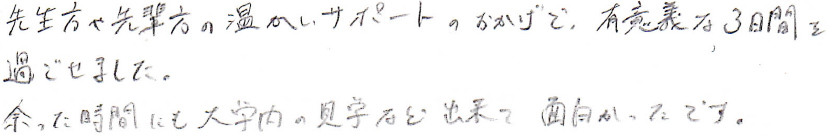 先生方や先輩方の温かいサポートのおかげで、有意義な3日間を
過ごせました。
余った時間にも大学内の見学など出来て面白かったです。